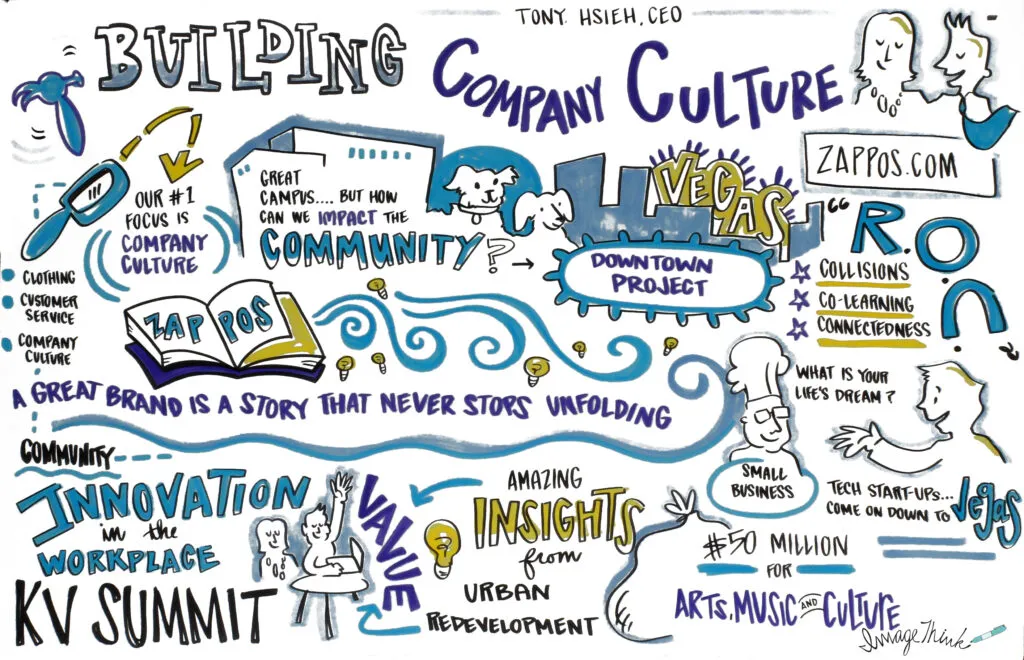 TONY HSIEH, CEO
BUILDING
COMPANY CULTURE
ZAPPOS.COM
OUR #1
FOCUS IS
COMPANY
CULTURE
GREAT
CAMPUS.... BUT HOW
CAN WE IMPACT THE
COMMUNITY?
VEGAS
DOWNTOWN
PROJECT
"R.O.C."
COLLISIONS
CO-LEARNING
CONNECTEDNESS
CLOTHING
CUSTOMER
SERVICE
COMPANY
CULTURE
COMMUNITY
ZAPPOS
A GREAT BRAND IS A STORY THAT NEVER STOPS UNFOLDING
SMALL
BUSINESS
WHAT IS YOUR
LIFE'S DREAM?
TECH START-UPS...
COME ON DOWN TO Vegas
INNOVATION
in the
WORKPLACE
KV SUMMIT
VALUE
AMAZING
INSIGHTS
from
URBAN
REDEVELOPMENT
$50 MILLION
FOR
ARTS, MUSIC AND CULTURE
ImageThink